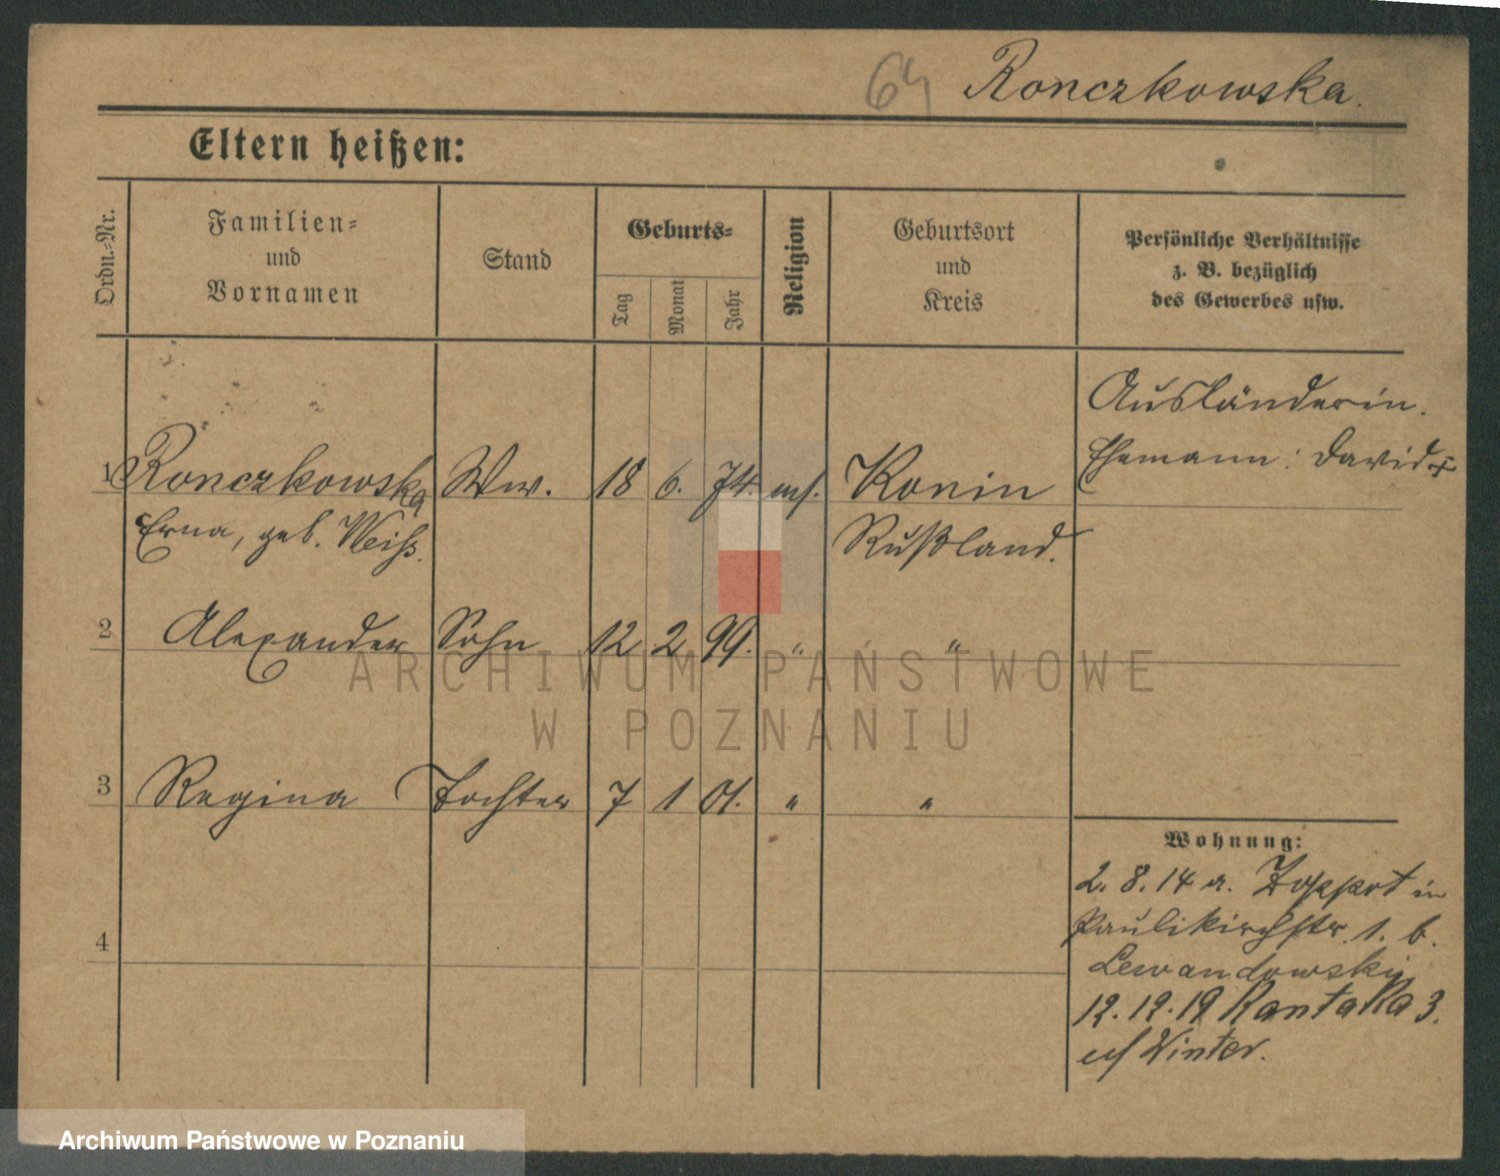 64 Ronczkowska.
Eltern heißen:
Ordn.-Nr.
Familien-
und
Vornamen
Stand
Geburts-
Tag
Monat
Jahr
Religion
Geburtsort
und
Kreis
Persönliche Verhältnisse
z. B. bezüglich
des Gewerbes usw.
Ausländerin.
Ehemann: David
1 Ronczkowska Ww. 18 6. 74. mos. Konin
Erna, geb. Weiß. Rußland.
2 Alexander Sohn 12 2 99. " "
3 Regina Tochter 7 1 01. " "
4
Wohnung:
2. 8. 14 a. Zoppot in
Paulikirchstr. 1. b.
Lewandowski
12. 12. 19
Winter.
ARCHIWUM PAŃSTWOWE
W POZNANIU
Archiwum Państwowe w Poznaniu